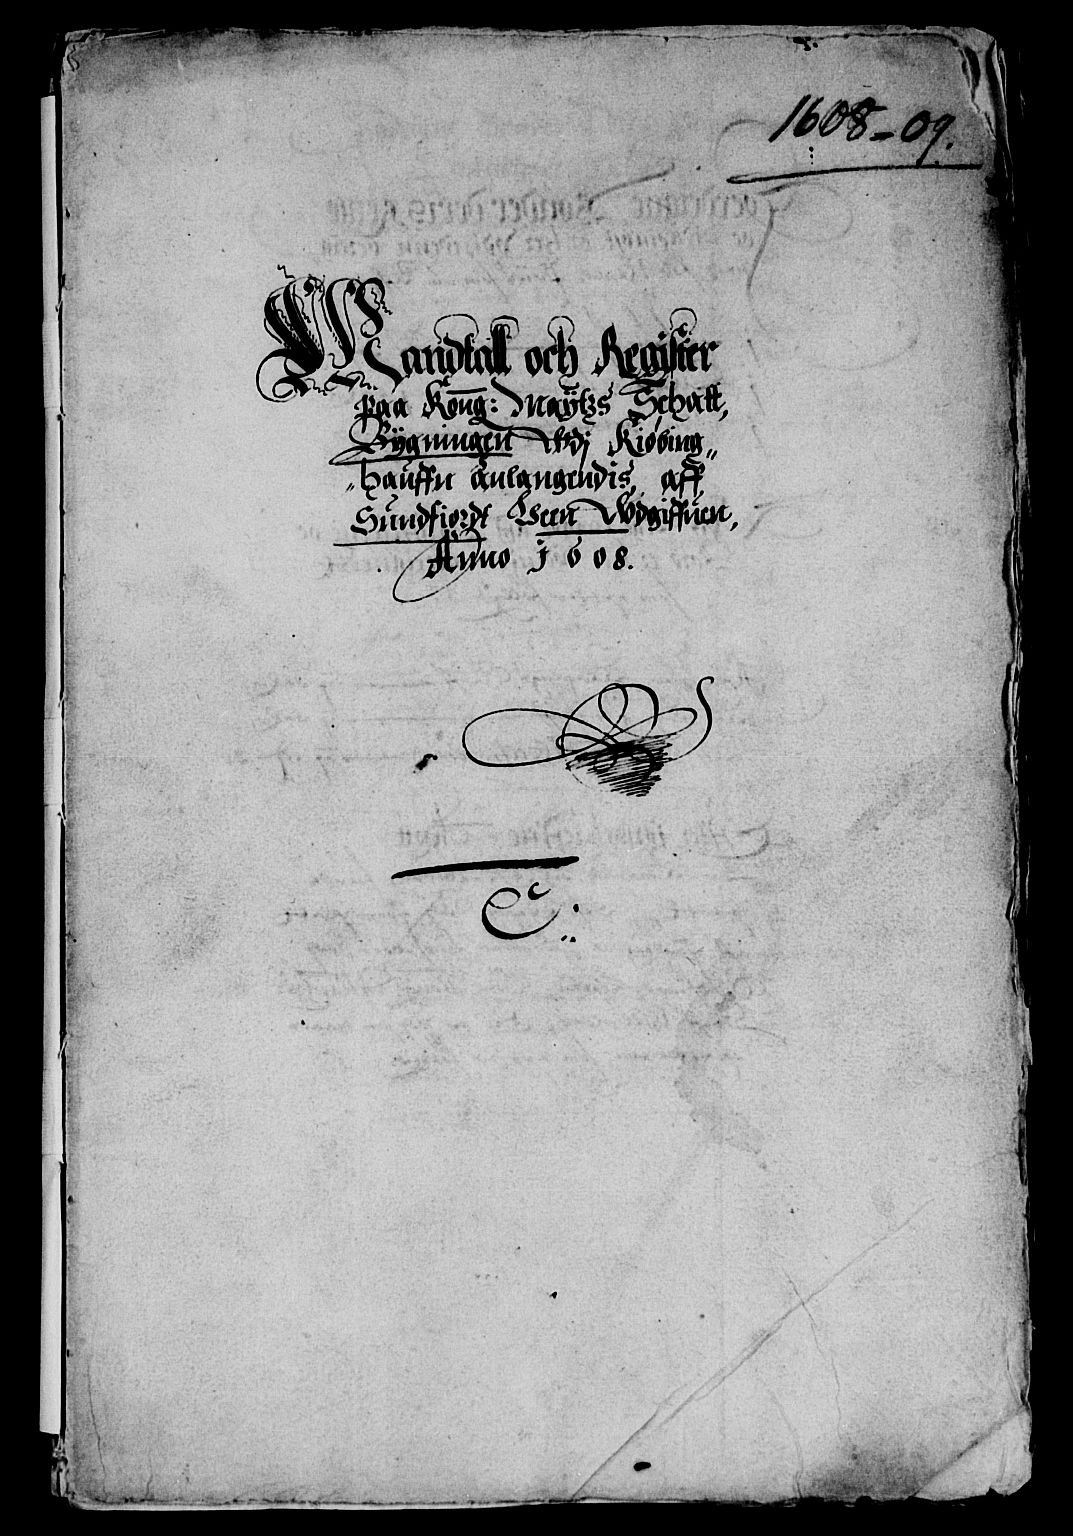 1608-09.
Mandtall och Register
paa Kong: Maÿtzs Schatt,
Bÿgningen Wdj Kiøbing„
„hauffn anlangendis, aff
Sundfiordt Leen Wdgiffuen,
Anno 1608.
C: